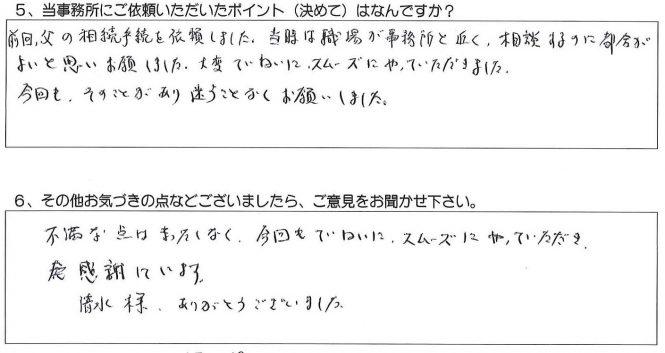 5、当事務所にご依頼いただいたポイント（決めて）はなんですか？
前回、父の相続手続を依頼しました。当時は職場が事務所と近く、相談するのに都合が
よいと思いお願いしました。大変ていねいに、スムーズにやっていただきました。
今回も、そのことがあり迷うことなくお願いしました。
6、その他お気づきの点などございましたら、ご意見をお聞かせ下さい。
不満な点はまったくなく、今回もていねいに、スムーズにやっていただき、
感謝しています。
清水様、ありがとうございました。